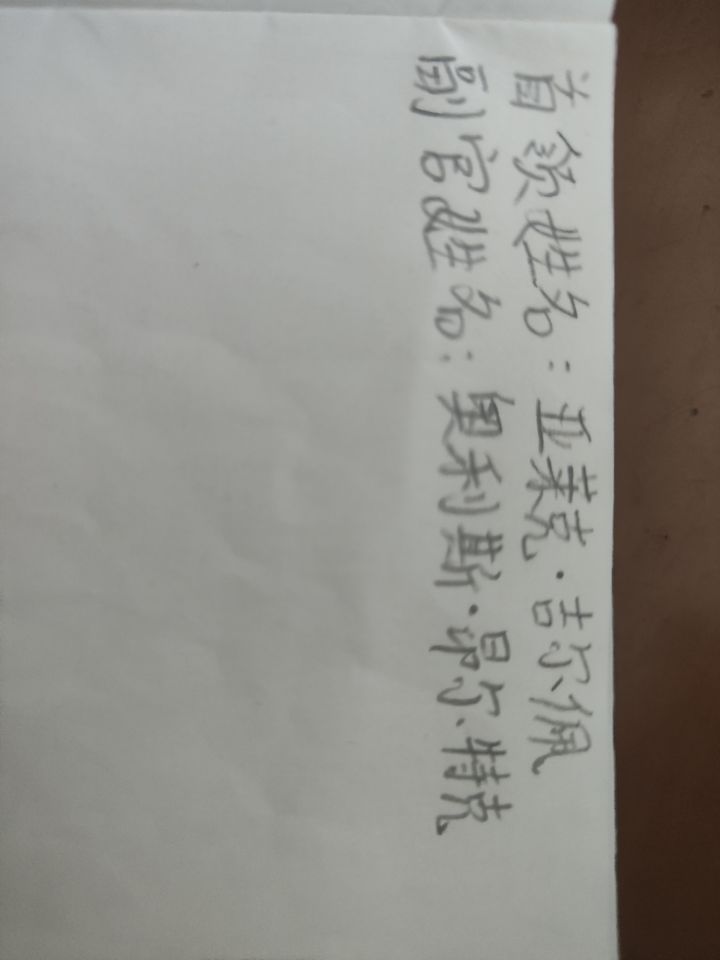 首领姓名：亚莱克·吉尔佩
副官姓名：奥利斯·昂尔特克